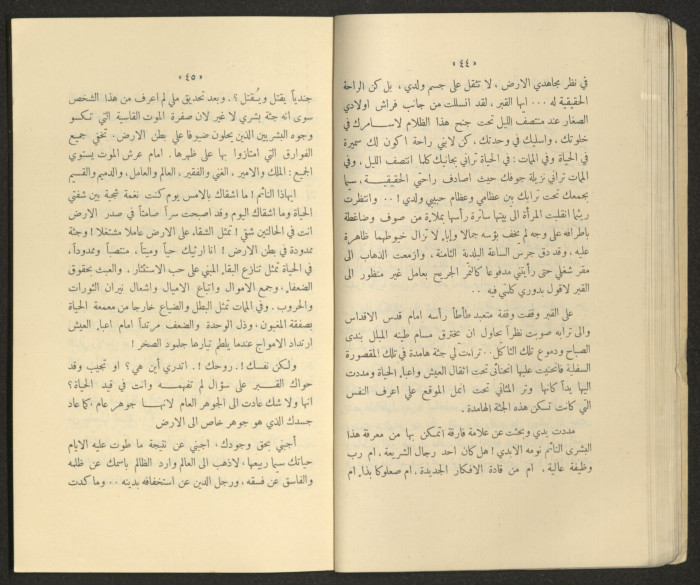 «٤٤»
في نظر مجاهدي الارض، لا تثقل على جسم ولدي، بل كن الراحة
الحقيقية له ... ايها القبر، لقد انسللت من جانب فراش اولادي
الصغار عند منتصف الليل تحت جنح هذا الظلام لاسامرك في
خلوتك، واسليك في وحدتك، كن لابني راحة اكون لك سميرة
في الحياة وفي المات: في الحياة تراني بجانبك كلما انتصف الليل، وفي
المات تراني نزيلة جوفك حيث اصادف راحتي الحقيقية، سيما
بجمعك تحت ترابك بين عظامي وعظام حبيبي ولدي! .. وانتظرت
ريثما انقلبت المرأة الى بيتها ساترة رأسها بملاءة من صوف وضاغطة
باطرافه على وجه لم يخف بؤسه جمالا وإباء لا تزال خيوطهما ظاهرة
عليه، وقد دق جرس الساعة البلدية الثامنة، وازمعت الذهاب الى
مقر شغلي حتى رأيتني مدفوعا كالنمر الجريح بعامل غير منظور الى
القبر لاقول بدوري كلمتي فيه ..
على القبر وقفت وقفة متعبد طأطأ رأسه امام قدس الاقداس
والى ترابه صوبت نظراً يحاول ان يخترق مسام طينه المبلل بندى
الصباح ودموع تلك الثاكل.. تراءت لي جثة هامدة في تلك المقصورة
السفلية فانحنيت عليها انحنائي تحت اثقال العيش واعباء الحياة ومددت
اليها يداً كأنها وتر المثاني تحت انمل الموقع علي اعرف النفس
التي كانت تسكن هذه الجثة الهامدة.
مددت يدي وبحثت عن علامة فارقة اتمكن بها من معرفة هذا
البشري النائم نومه الابدي! هل كان احد رجال الشريعة، ام رب
وظيفة عالية، ام من قادة الافكار الجديدة، ام صعلوكا بذاء ام
«٤٥»
جندياً يقتل ويُقتل؟. وبعد تحديق ملي لم اعرف من هذا الشخص
سوى انه جثة بشري لا غير لان صفرة الموت القاسية التي تكسو
وجوه البشريين الذين يحلون ضيوفا على بطن الارض. تمحى جميع
الفوارق التي امتازوا بها على ظهرها. امام عرش الموت يستوي
الجميع: الملك والامير، الغني والفقير، العالم والعامل، والدميم والقسيم
ايهاذا النائم! ما اشقاك بالامس يوم كنت نغمة شجية بين شفتي
الحياة وما اشقاك اليوم وقد اصبحت سراً صامتاً في صدر الارض
انت في الحالتين شقي! تمثل الشقاء على الارض عاملا مشتغلا! وجثة
ممدودة في بطن الارض! انا ارثيك حياً وميتاً، منتصباً وممدوداً،
في الحياة تمثل تنازع البقاء المبني على حب الاستئثار، والعبث بحقوق
الضعفاء، وجمع الاموال واتباع الاميال واشعال نيران الثورات
والحروب. وفي المات تمثل البطل والضياع خارجا من معمعة الحياة
بصفقة المغبون، وذل الوحدة والضعف مرتداً امام اعباء العيش
ارتداد الامواج عندما يلطم تيارها جلمود الصخر!
ولكن نفسك!. روحك!. اتدري أين هي؟ او تجيب وقد
حواك القبر على سؤال لم تفهمه وانت في قيد الحياة؟
انها ولا شك عادت الى الجوهر العام لانها جوهر عام، كما عاد
جسدك الذي هو جوهر خاص الى الارض
أجبني بحق وجودك، اجبني عن نتيجة ما طوت عليه الايام
حياتك سيما ربيعها، لاذهب الى العالم وارد الظالم باسمك عن ظلمه
والفاسق عن فسقه، ورجل الدين عن استخفافه بدينه .. وما كدت